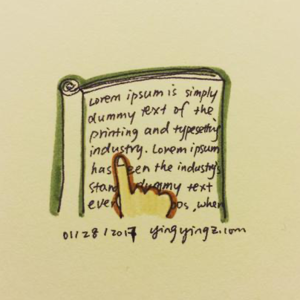 Lorem ipsum is simply
dummy text of the
printing and typesetting
industry. Lorem ipsum
has been the industry's
stand dummy text
ever 00s, when
01/28/2017 yingyingz.com